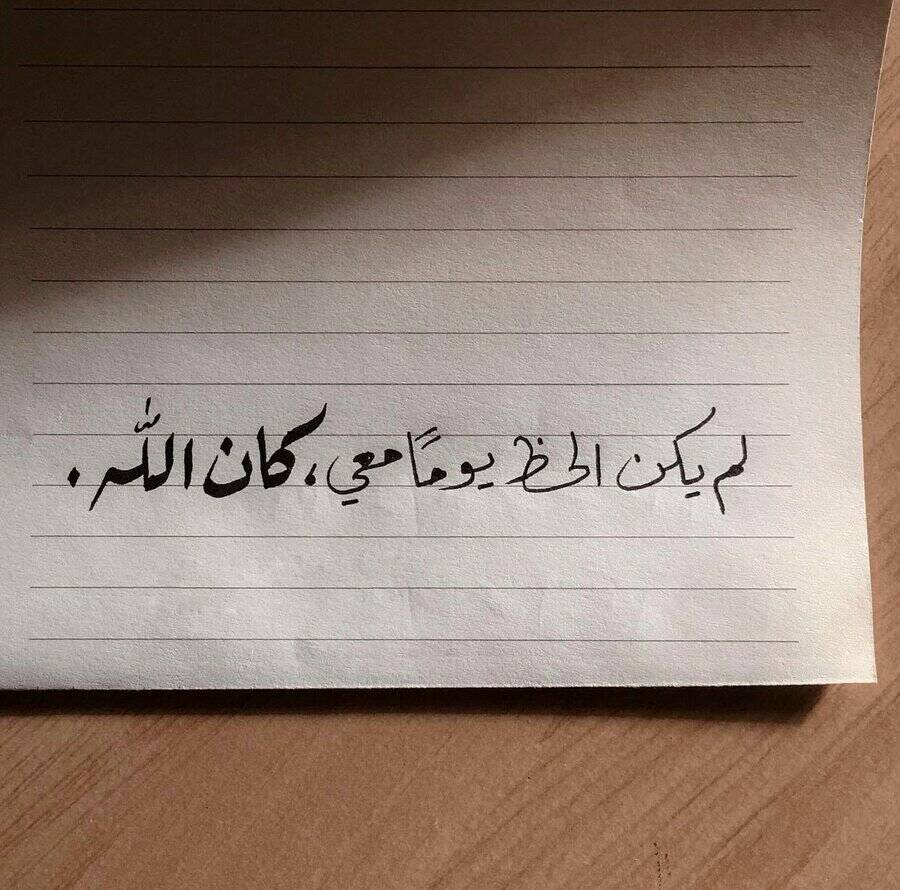 لم يكن الحظ يومًا معي، كان اللّٰه.